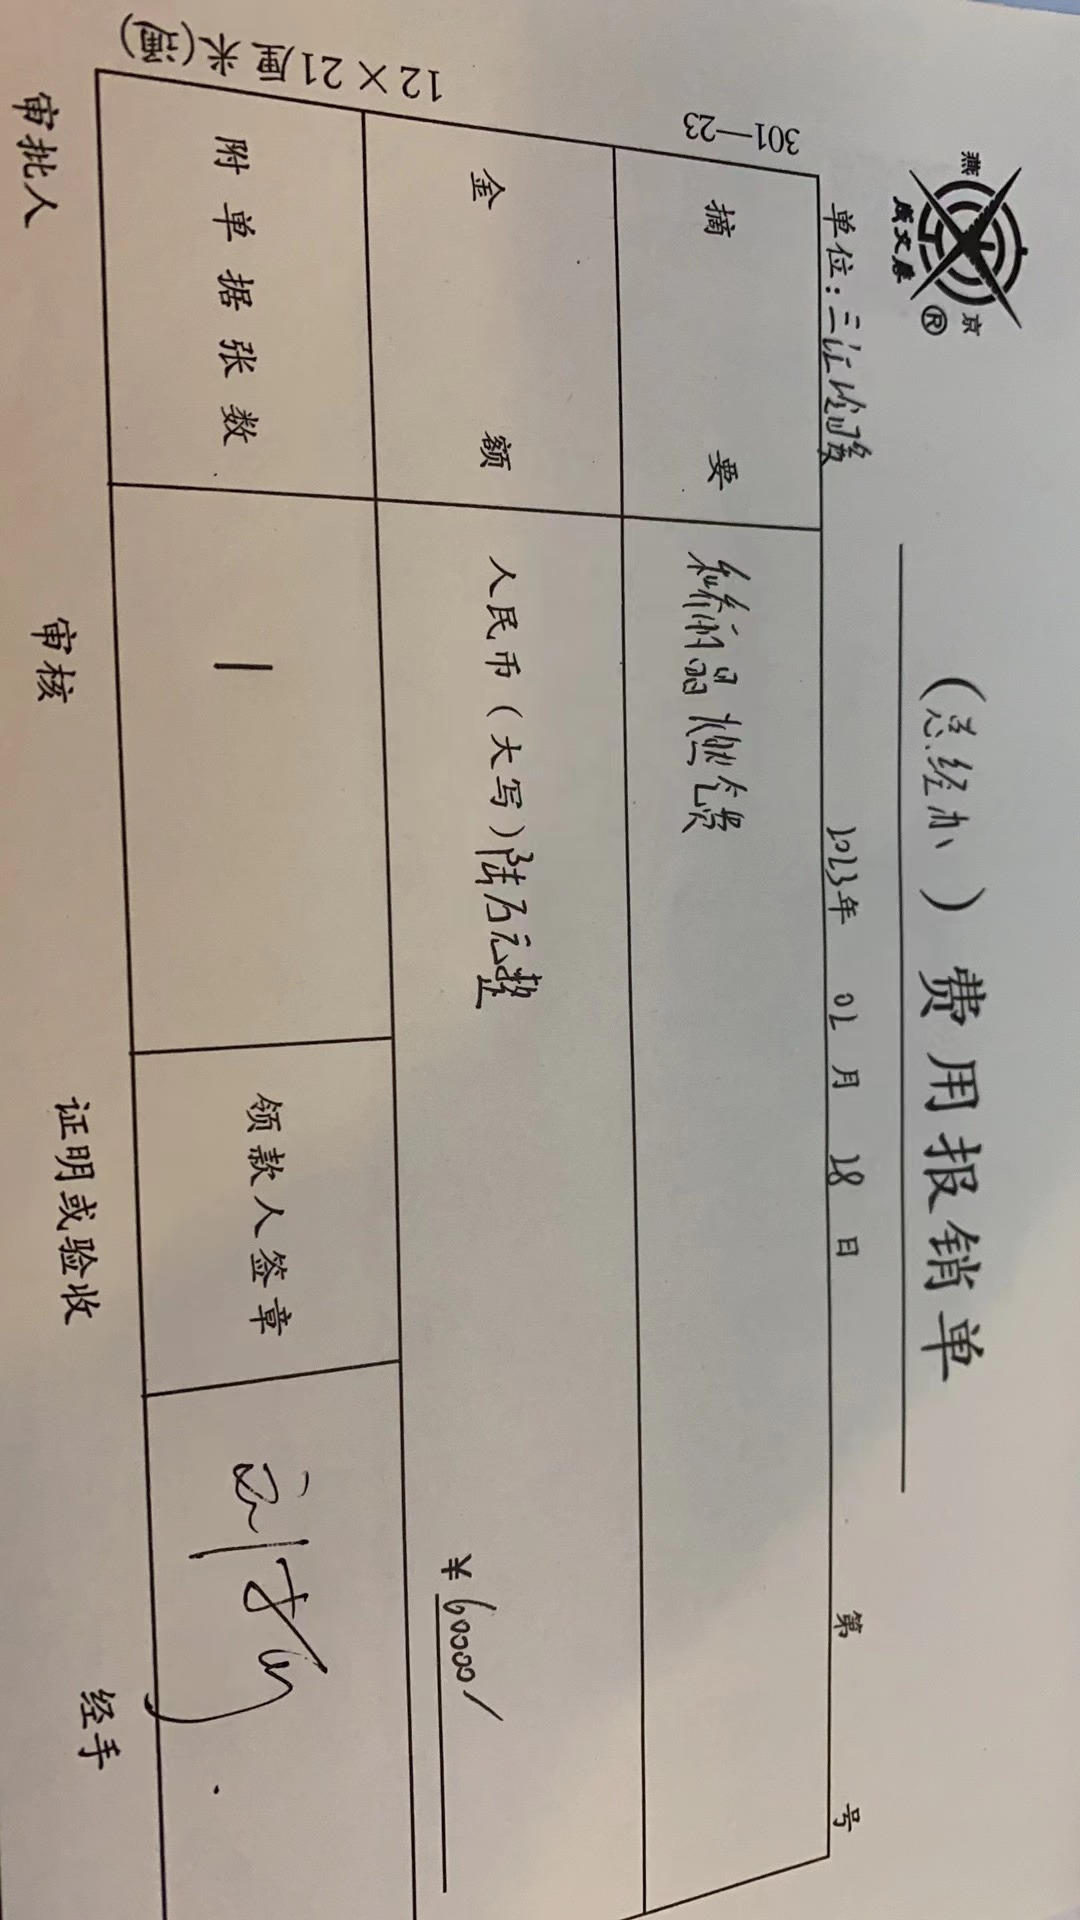 燕 京
成文厚 ®
(总经办)费用报销单
单位: 2023年 02月 28日 第 号
301—23
摘 要 燃气费
金 额 人民币(大写)陆万元整
¥60000/
附单据张数 1 领款人签章
审批人 审核 证明或验收 经手
12×21厘米(通)